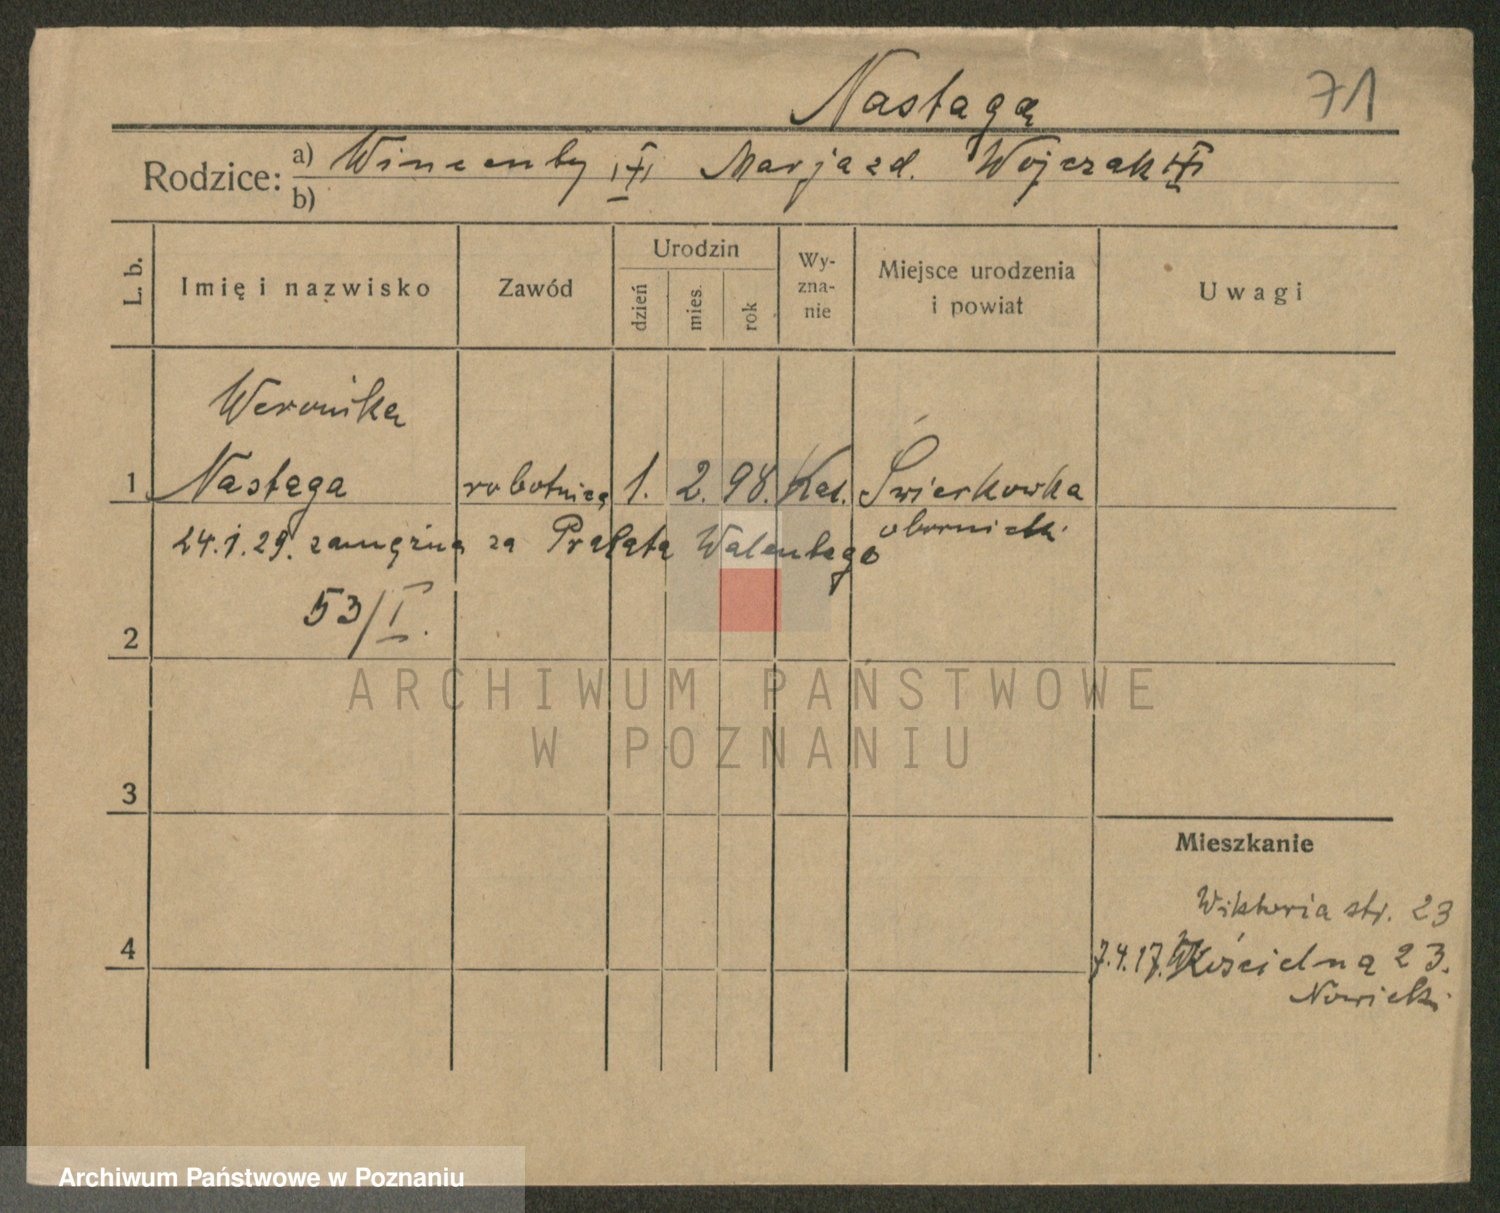 Nastaga
71
Rodzice: a) Wincenty Marja zd. Wojczak
b)
L. b.
Imię i nazwisko
Zawód
Urodzin
dzień
mies.
rok
Wy-
zna-
nie
Miejsce urodzenia
i powiat
Uwagi
Weronika
1 Nastaga robotnica 1. 2. 98. Kat. Świerkówka
obornicki
24.1.29. zamężna za Prałata Walentego
53/I.
2
3
4
Mieszkanie
Wiktoria str. 23
7.4.17. Kościelna 23.
Nowicki
ARCHIWUM PAŃSTWOWE
W POZNANIU
Archiwum Państwowe w Poznaniu